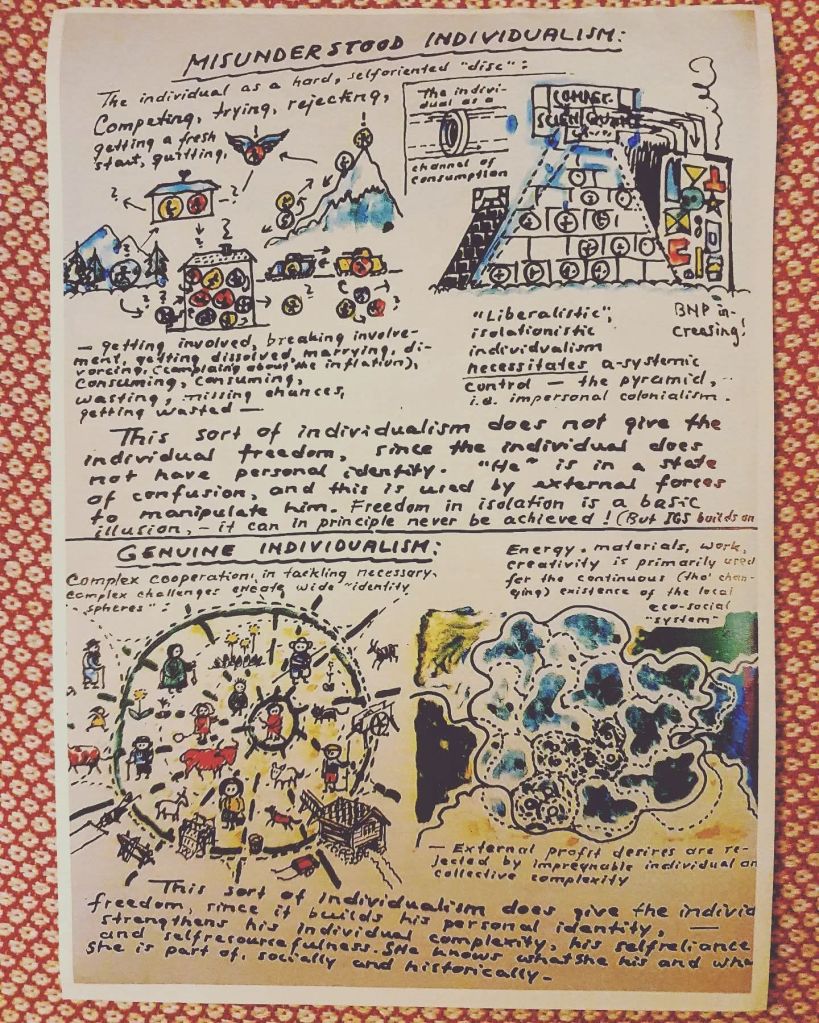 MISUNDERSTOOD INDIVIDUALISM:
The individual as a hard, selforiented "disc":
Competing, trying, rejecting,
getting a fresh
start, quitting,
The indivi-
dual as a
channel of
consumption
— getting involved, breaking involve-
ment, getting dissolved, marrying, di-
vorcing, (complaining about the inflation),
consuming, consuming,
wasting, missing chances,
getting wasted —
"Liberalistic",
isolationistic
individualism
necessitates a-systemic
control — the pyramid, -
i.e. impersonal colonialism.
BNP in-
creasing!
This sort of individualism does not give the
individual freedom, since the individual does
not have personal identity. "He" is in a state
of confusion, and this is used by external forces
to manipulate him. Freedom in isolation is a basic
illusion, - it can in principle never be achieved! (But IGS builds on
GENUINE INDIVIDUALISM:
Complex cooperation, in tackling necessary,
complex challenges create wide "identity
spheres":
Energy, materials, work,
creativity is primarily used
for the continuous (tho' chan-
ging) existence of the local
eco-social
"system"
— External profit desires are re-
jected by impregnable individual an
collective complexity
This sort of individualism does give the individ
freedom, since it builds his personal identity, —
strengthens his individual complexity, his selfreliance
and selfresourcefulness. SHe knows what SHe his and wha
She is part of, socially and historically. -